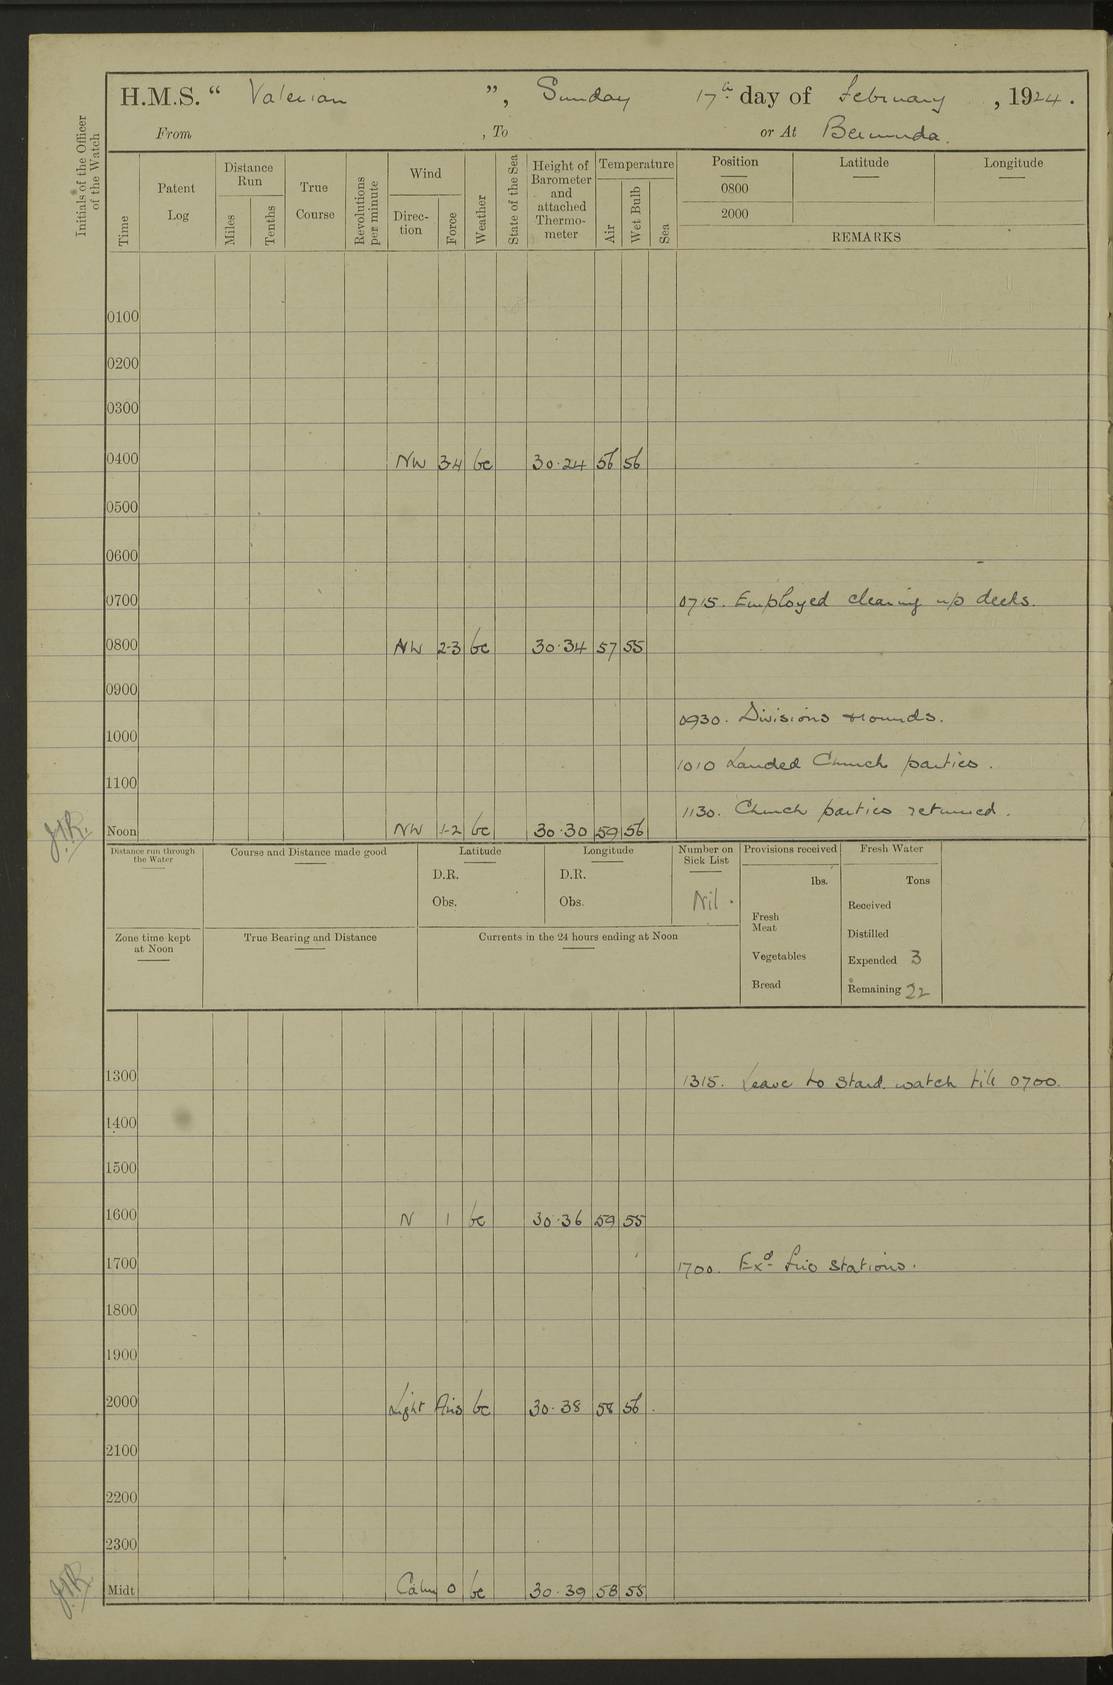 H.M.S. “ Valerian ”, Sunday 17th day of February, 1924.
From , To or At Bermuda.
Initials of the Officer of the Watch
Time
Patent Log
Distance Run
Miles
Tenths
True Course
Revolutions per minute
Wind
Direction
Force
Weather
State of the Sea
Height of Barometer and attached Thermometer
Temperature
Air
Wet Bulb
Sea
Position
0800
2000
Latitude
Longitude
REMARKS
0100
0200
0300
0400 NW 3-4 bc 30.24 56 56
0500
0600
0700 0715. Employed clearing up decks.
0800 NW 2-3 bc 30.34 57 55
0900
0930. Divisions & rounds.
1000
1010 Landed Church parties.
1100
1130. Church parties returned.
Noon NW 1-2 bc 30.30 59 56
Distance run through the Water
Course and Distance made good
Latitude
D.R.
Obs.
Longitude
D.R.
Obs.
Number on Sick List
Nil.
Provisions received
lbs.
Fresh Meat
Vegetables
Bread
Fresh Water
Tons
Received
Distilled
Expended 3
Remaining 22
Zone time kept at Noon
True Bearing and Distance
Currents in the 24 hours ending at Noon
1300 1315. Leave to Stard. watch till 0700.
1400
1500
1600 N 1 bc 30.36 59 55
1700 1700. Exd. fire stations.
1800
1900
2000 Light Airs bc 30.38 58 56
2100
2200
2300
Midt Calm 0 bc 30.39 58 55